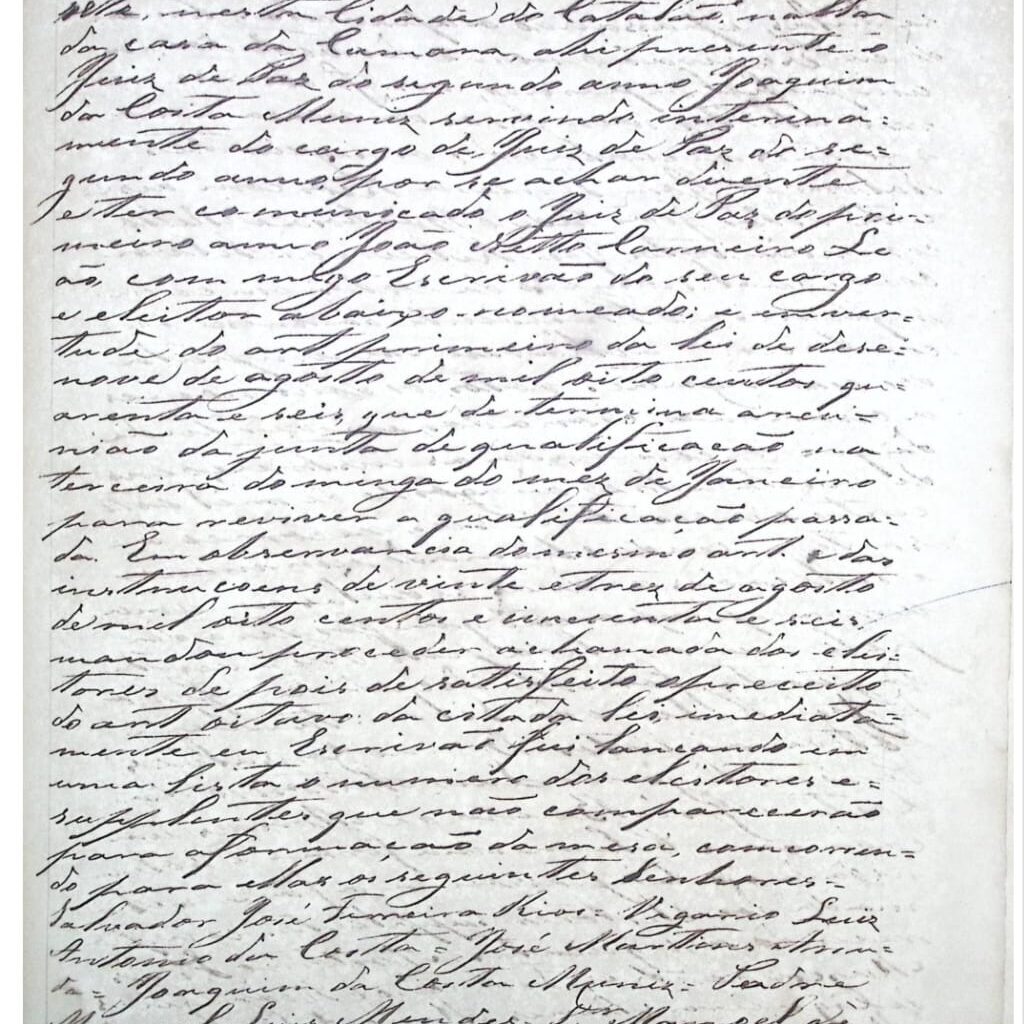 nesta Cidade do Catalão, na Sala
da casa da Camara, ahi presente o
Juiz de Paz do segundo anno Joaquim
da Costa Muniz servindo interina=
mente do cargo de Juiz de Paz do se=
gundo anno, por se achar duente
e ter comunicado o Juiz de Paz do pri=
meiro anno João Netto Carneiro Le
ão, com migo Escrivão do seu cargo
e eleitor abaixo nomeado; e invir=
tude do art. primeiro da lei de deze=
nove de agosto de mil oito centos qu=
arenta e seis, que de termina areu=
nião da junta de qualificação na
terceira dominga do mez de Janeiro
para reviver a qualificação passa=
da. Em observancia do mesmo art. e das
instrucoens de vinte e trez de agosto
de mil oito centos e sincoenta e seis,
mandou proceder achamada dos elei=
tores de pois de satisfeito opreceito
do art oitavo da citada lei, imediata=
mente eu Escrivão fui lancando im
uma lista o numero dos eleitores e=
supplentes que não comparecerão
para aformação da meza, comcorren=
do para ellas os seguintes Senhores=
Salvador José Ferreira Rios= Vigario Luiz
Antonio da Costa= José Martins
= Joaquim da Costa Muniz= Padre
Luiz Mendes= Manoel de